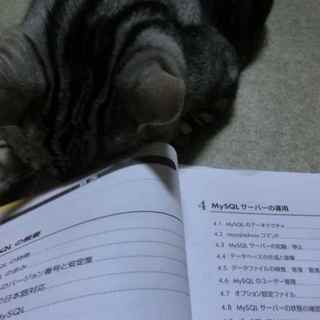 QL の概要
QL の特徴
QL の歩み
のバージョン番号と安定度
の日本語対応
MySQL
4 MySQLサーバーの運用
4.1 MySQLのアーキテクチャ
4.2 mysqladmin コマンド
4.3 MySQLサーバーの起動/停止
4.4 データベースの作成と削除
4.5 データファイルの
4.6 MySQLのユーザー管理
4.7 オプション設定ファイル
4.8 MySQLサーバーの状態の確認